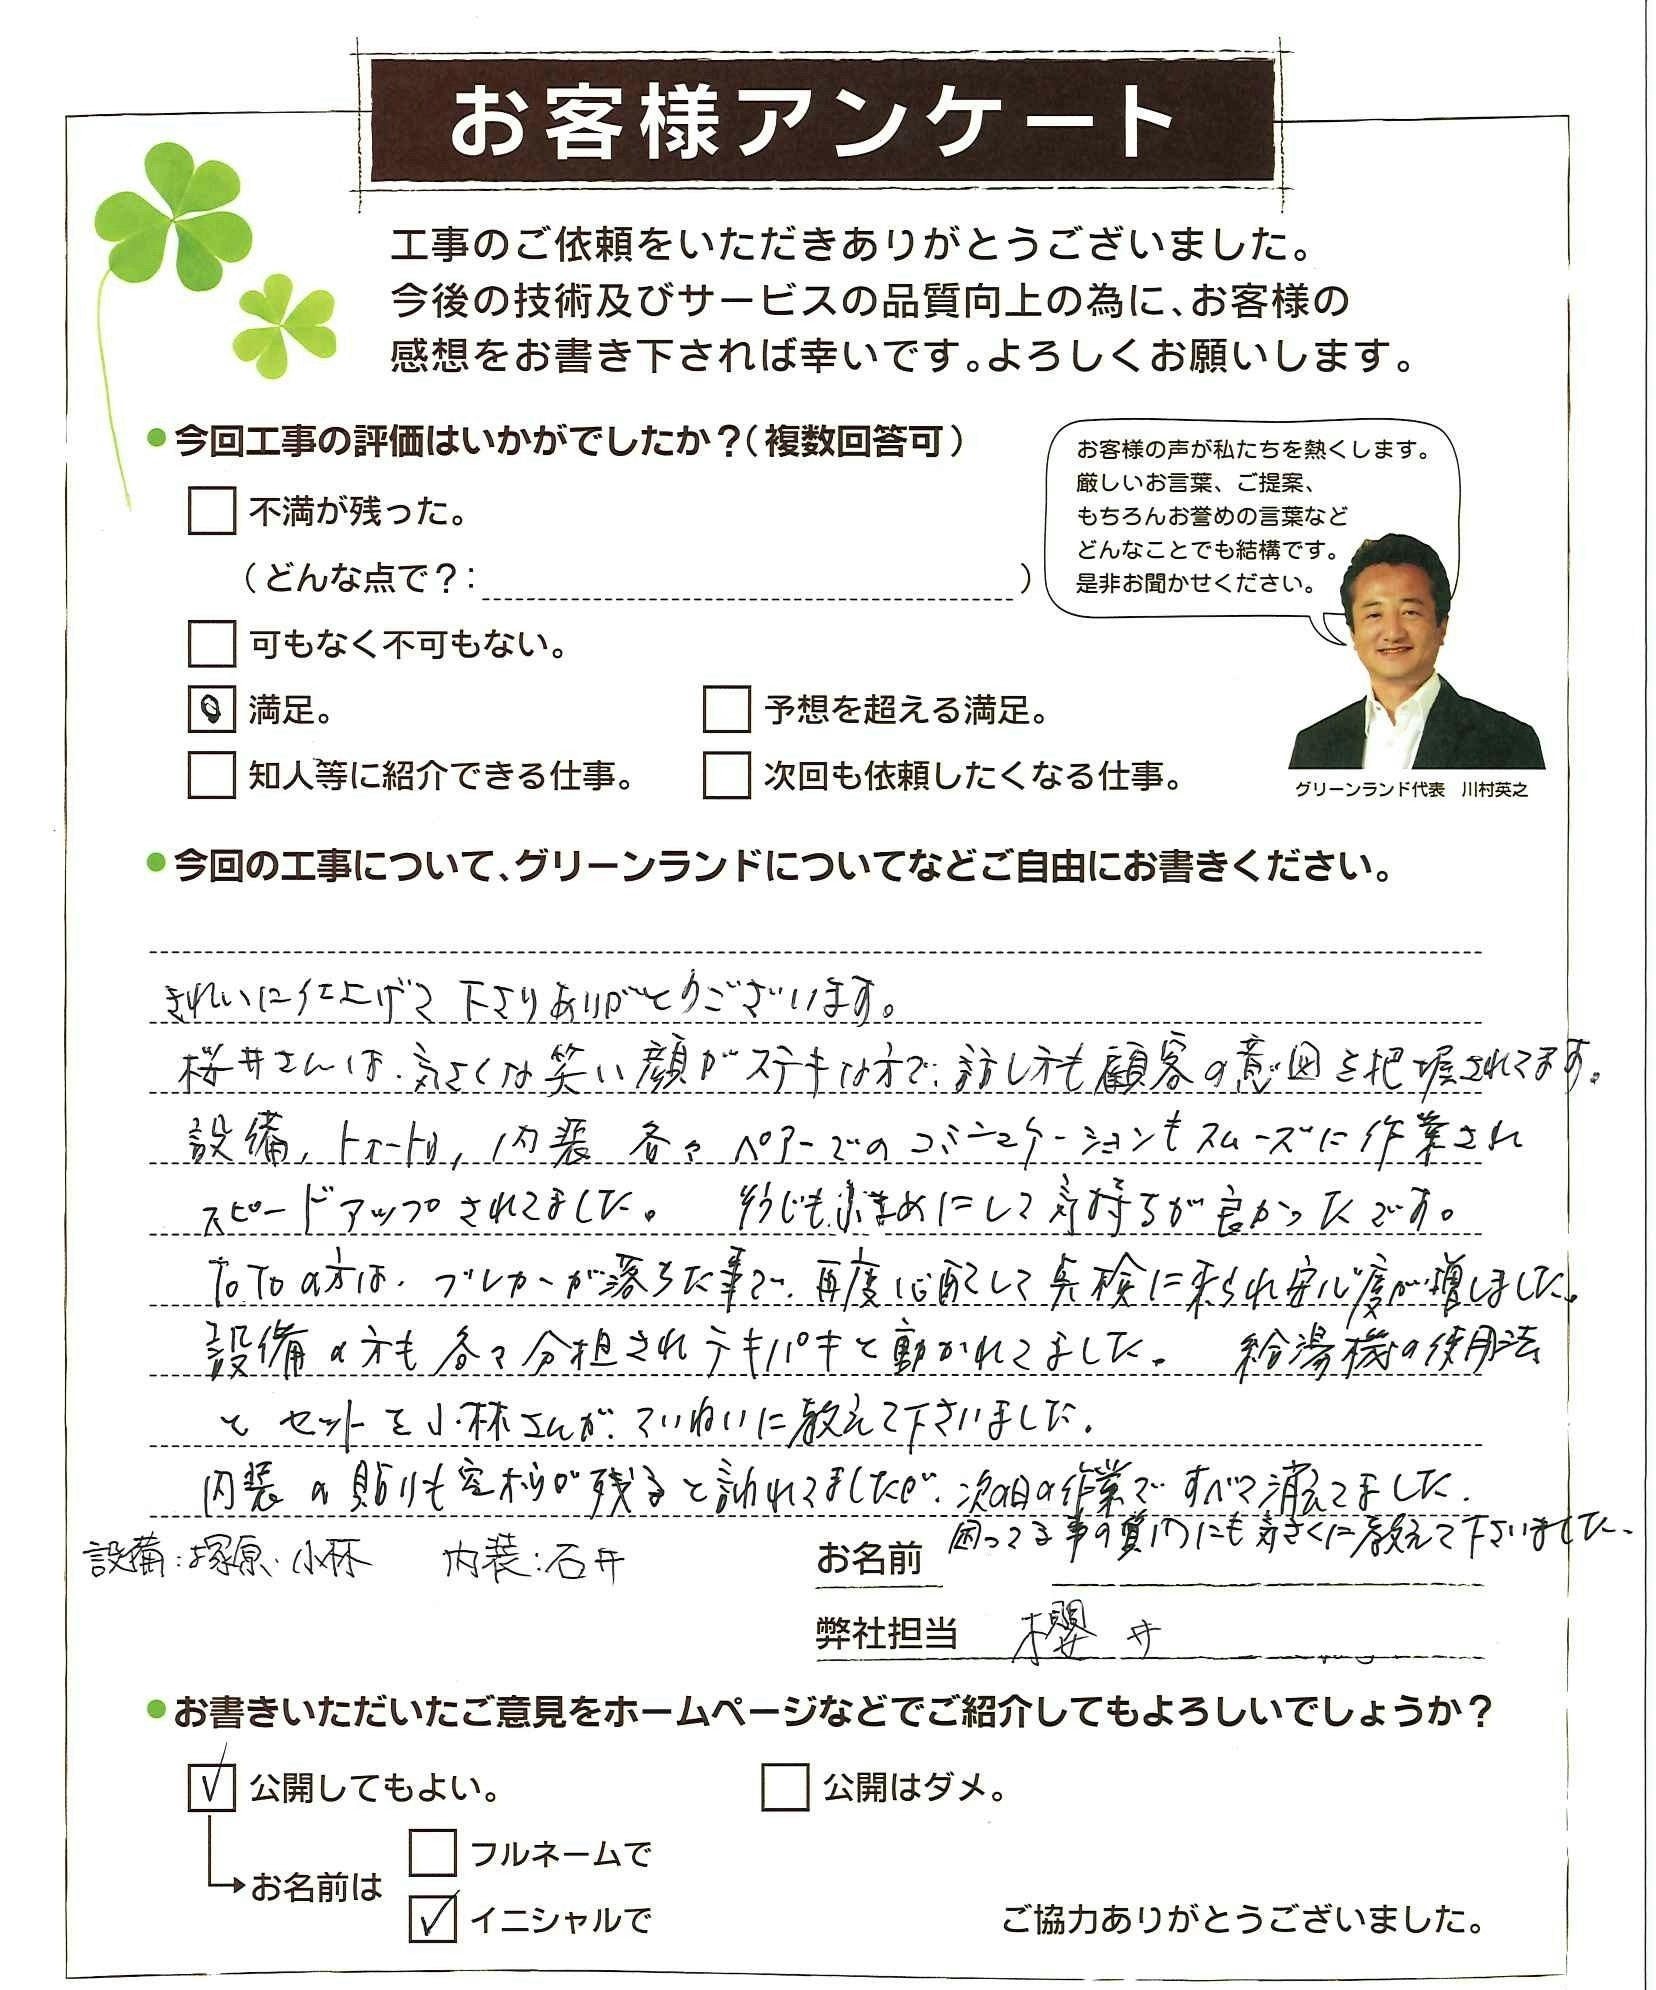 お客様アンケート
工事のご依頼をいただきありがとうございました。
今後の技術及びサービスの品質向上の為に、お客様の
感想をお書き下されば幸いです。よろしくお願いします。
今回工事の評価はいかがでしたか？（複数回答可）
不満が残った。
（どんな点で？： ）
可もなく不可もない。
満足。
予想を超える満足。
知人等に紹介できる仕事。
次回も依頼したくなる仕事。
お客様の声が私たちを熱くします。
厳しいお言葉、ご提案、
もちろんお誉めの言葉など
どんなことでも結構です。
是非お聞かせください。
グリーンランド代表 川村英之
今回の工事について、グリーンランドについてなどご自由にお書きください。
きれいに仕上げて下さりありがとうございます。
桜井さんは、気さくな笑い顔がステキな方で、話し方も顧客の意図を把握されてます。
設備, 内装 各々 ペアーでのコミニュケーションもスムーズに作業され
スピードアップされてました。 気持ちが良かったです。
TOTOの方は、ブレカーが落ちた事で、再度心配して点検に来られ安心度が増しました。
設備の方も各々分担されテキパキと動かれてました。 給湯機の使用法
とセットを小林さんが、ていねいに教えて下さいました。
内装の貼りも空気が残ると言われてましたが、次の日の作業ですべて消えてました.
困ってる事の質問にも気さくに教えて下さいました。
設備：塚原・小林 内装：石井
お名前
弊社担当 櫻井
お書きいただいたご意見をホームページなどでご紹介してもよろしいでしょうか？
公開してもよい。
公開はダメ。
お名前は
フルネームで
イニシャルで
ご協力ありがとうございました。